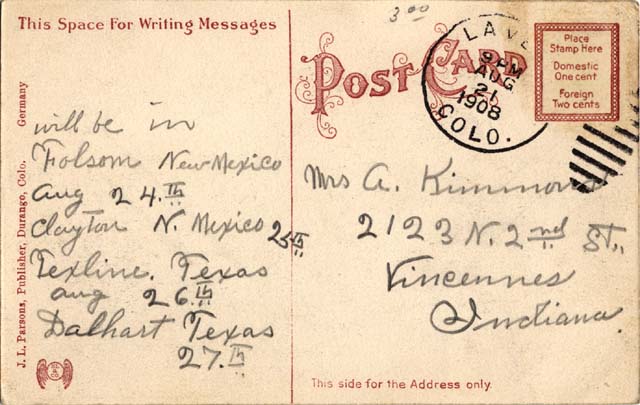 This Space For Writing Messages
3.00
POST CARD
Place
Stamp Here
Domestic
One cent
Foreign
Two cents
9 PM
AUG
21
1908
COLO.
will be in
Folsom New-Mexico
Aug 24.th
Clayton N. Mexico 25th
Texline. Texas
aug 26.th
Dalhart Texas
27.th
Mrs A. Kimmons
2123 N. 2nd St.,
Vincennes
Indiana.
J. L. Parsons, Publisher, Durango, Colo. Germany
This side for the Address only.